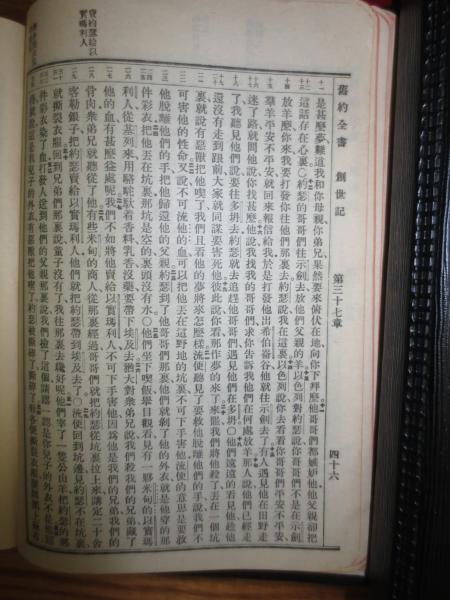 舊約全書 創世記 第三十七章 四十六
是甚麼夢難道我和你母親你弟兄果然要來俯伏在地向你下拜麼他哥哥們都嫉妒他他父親卻把
這話存在心裏○約瑟的哥哥們往示劍去放他們父親的羊以色列對約瑟說你哥哥們不是在示劍
放羊麼你來我要打發你往他們那裏去約瑟說我在這裏以色列說你去看看你哥哥們平安不平安、
羣羊平安不平安就回來報信給我於是打發他出希伯崙谷他就往示劍去了有人遇見他在田野走
迷了路就問他說你找甚麼他說我找我的哥哥們求你告訴我他們在何處放羊那人說他們已經走
了我聽見他們說要往多坍去約瑟就去追趕他哥哥們遇見他們在多坍○他們遠遠的看見他趁他
還沒有走到跟前大家就同謀要害死他彼此說你看那作夢的來了來罷我們將他殺了丟在一個坑
裏就說有惡獸把他喫了我們且看他的夢將來怎麼樣流便聽見了要救他脫離他們的手說我們不
可害他的性命又說不可流他的血可以把他丟在這野地的坑裏不可下手害他流便的意思是要救
他脫離他們的手把他歸還他的父親約瑟到了他哥哥們那裏他們就剝了他的外衣就是他穿的那
件彩衣把他丟在坑裏那坑是空的裏頭沒有水○他們坐下喫飯舉目觀看見有一夥米甸的以實瑪
利人從基列來用駱駝馱着香料乳香沒藥要帶下埃及去猶大對衆弟兄說我們殺我們的兄弟藏了
他的血有甚麼益處呢我們不如將他賣給以實瑪利人不可下手害他因為他是我們的兄弟我們的
骨肉衆弟兄就聽從了他有些米甸的商人從那裏經過哥哥們就把約瑟從坑裏拉上來講定二十舍
客勒銀子把約瑟賣給以實瑪利人他們就把約瑟帶到埃及去了○流便回到坑邊見約瑟不在坑裏、
就撕裂衣服回到兄弟們那裏說童子沒有了我往那裏去纔好呢他們宰了一隻公山羊把約瑟的那
件彩衣染了血打發人送到他們的父親那裏說我們撿了這個請認一認是你兒子的外衣不是
賣約瑟給以
實瑪利人